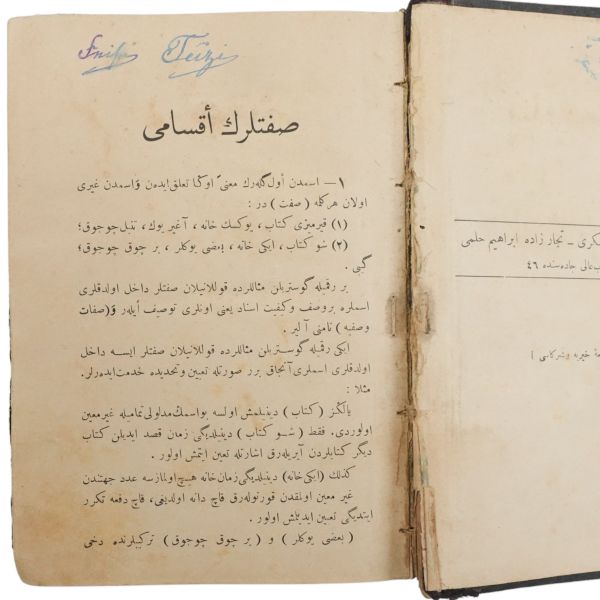 صفتلرك أقسامی
١— اسمدن أول گلەرك معنیً اوكا تعلق ایدەن و اسمدن غیری
اولان هركله ( صفت ) در :
(١) قیرمیزی كتاب ، یوكسك خانه ، آغیر یوك ، تنبل چوجوق ؛
(٢) شو كتاب ، ایكی خانه ، بعضی یوكلر ، بر چوق چوجوق ؛
گبی .
بر رقمیله گوستریلن مثاللرده قوللانیلان صفتلر داخل اولدقلری
اسملره بروصف وكیفیت اسناد یعنی اونلری توصیف أیلەر و (صفات
وصفیه ) نامنی آلیر .
ایكی رقمیله گوستریلن مثاللرده قوللانیلان صفتلر ایسه داخل
اولدقلری اسملری آنجاق برر صورتله تعیین وتحدیده خدمت ایدەرلر.
مثلا :
یالكز ( كتاب ) دینیلمش اولسه بواسمك مدلولی تمامیله غیرمعین
اولوردی. فقط ( شو كتاب ) دینیلدیگی زمان قصد ایدیلن كتاب
دیگر كتابلردن آیریلەرق اشارتله تعین ایتمش اولور .
كذلك (ایكی خانه) دینیلدیگی زمان خانه هیچ اولمازسه عدد جهتندن
غیر معین اولمقدن قورتولەرق قاچ دانه اولدیغی، قاچ دفعه تكرر
ایتدیگی تعیین ایدیلمش اولور .
( بعضی یوكلر ) و ( بر چوق چوجوق ) تركیبلرنده دخی
عسكری ـ تجار زاده ابراهیم حلمی
بعالی جاده سنده ٤٦
خیریه وشركاسی ]